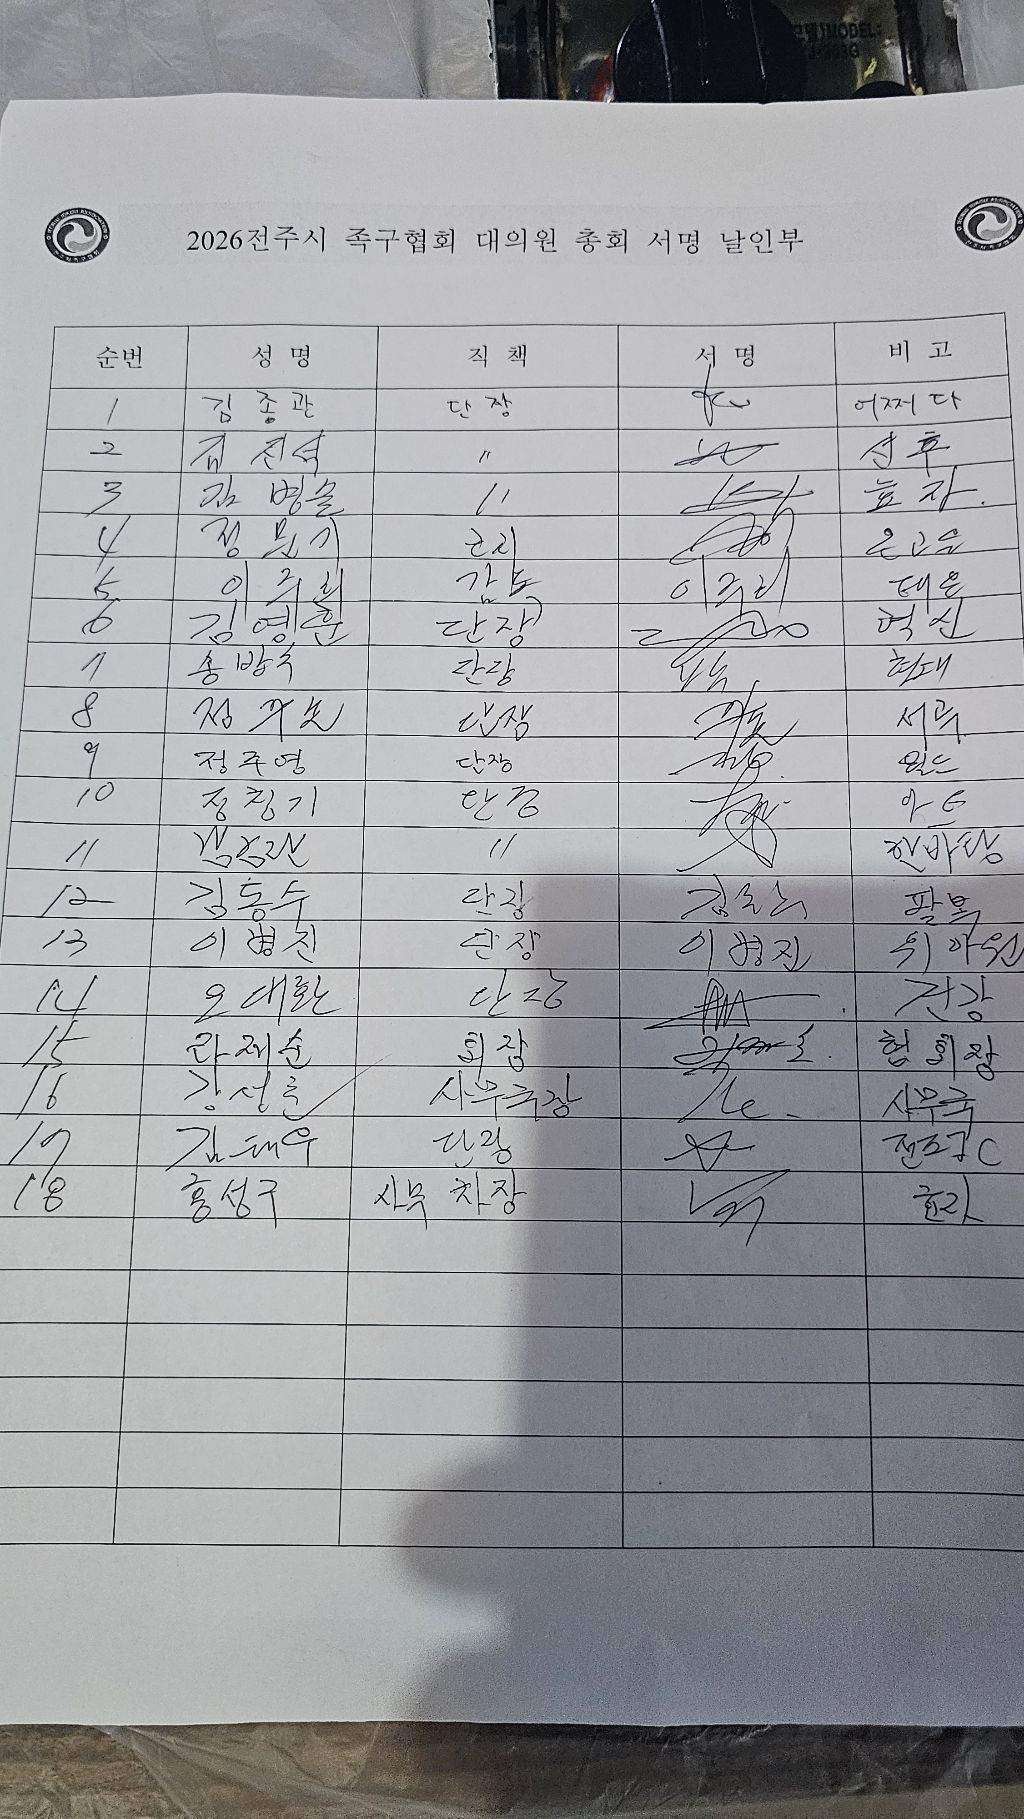 2026전주시 족구협회 대의원 총회 서명 날인부
순번 성 명 직 책 서 명 비 고
1 김종관 단장 어쩌다
2 김진석 〃 선후
3 김병술 〃 효자.
4 정 기 온고을
5 이주리 감독 이주리 태온
6 김영훈 단장 혁신
7 송방욱 단장 현대
8 정 단장
9 정주영 단장 월드
10 정칭기 단장 아트
11 〃 한바탕
12 김동수 단장 팔복
13 이병진 단장 이병진 위아원
14 오대환 단장 건강
15 라제순 회장 협회장
16 강성훈 사무국장 사무국
17 김태우 단장
18 홍성구 사무차장
MODEL: